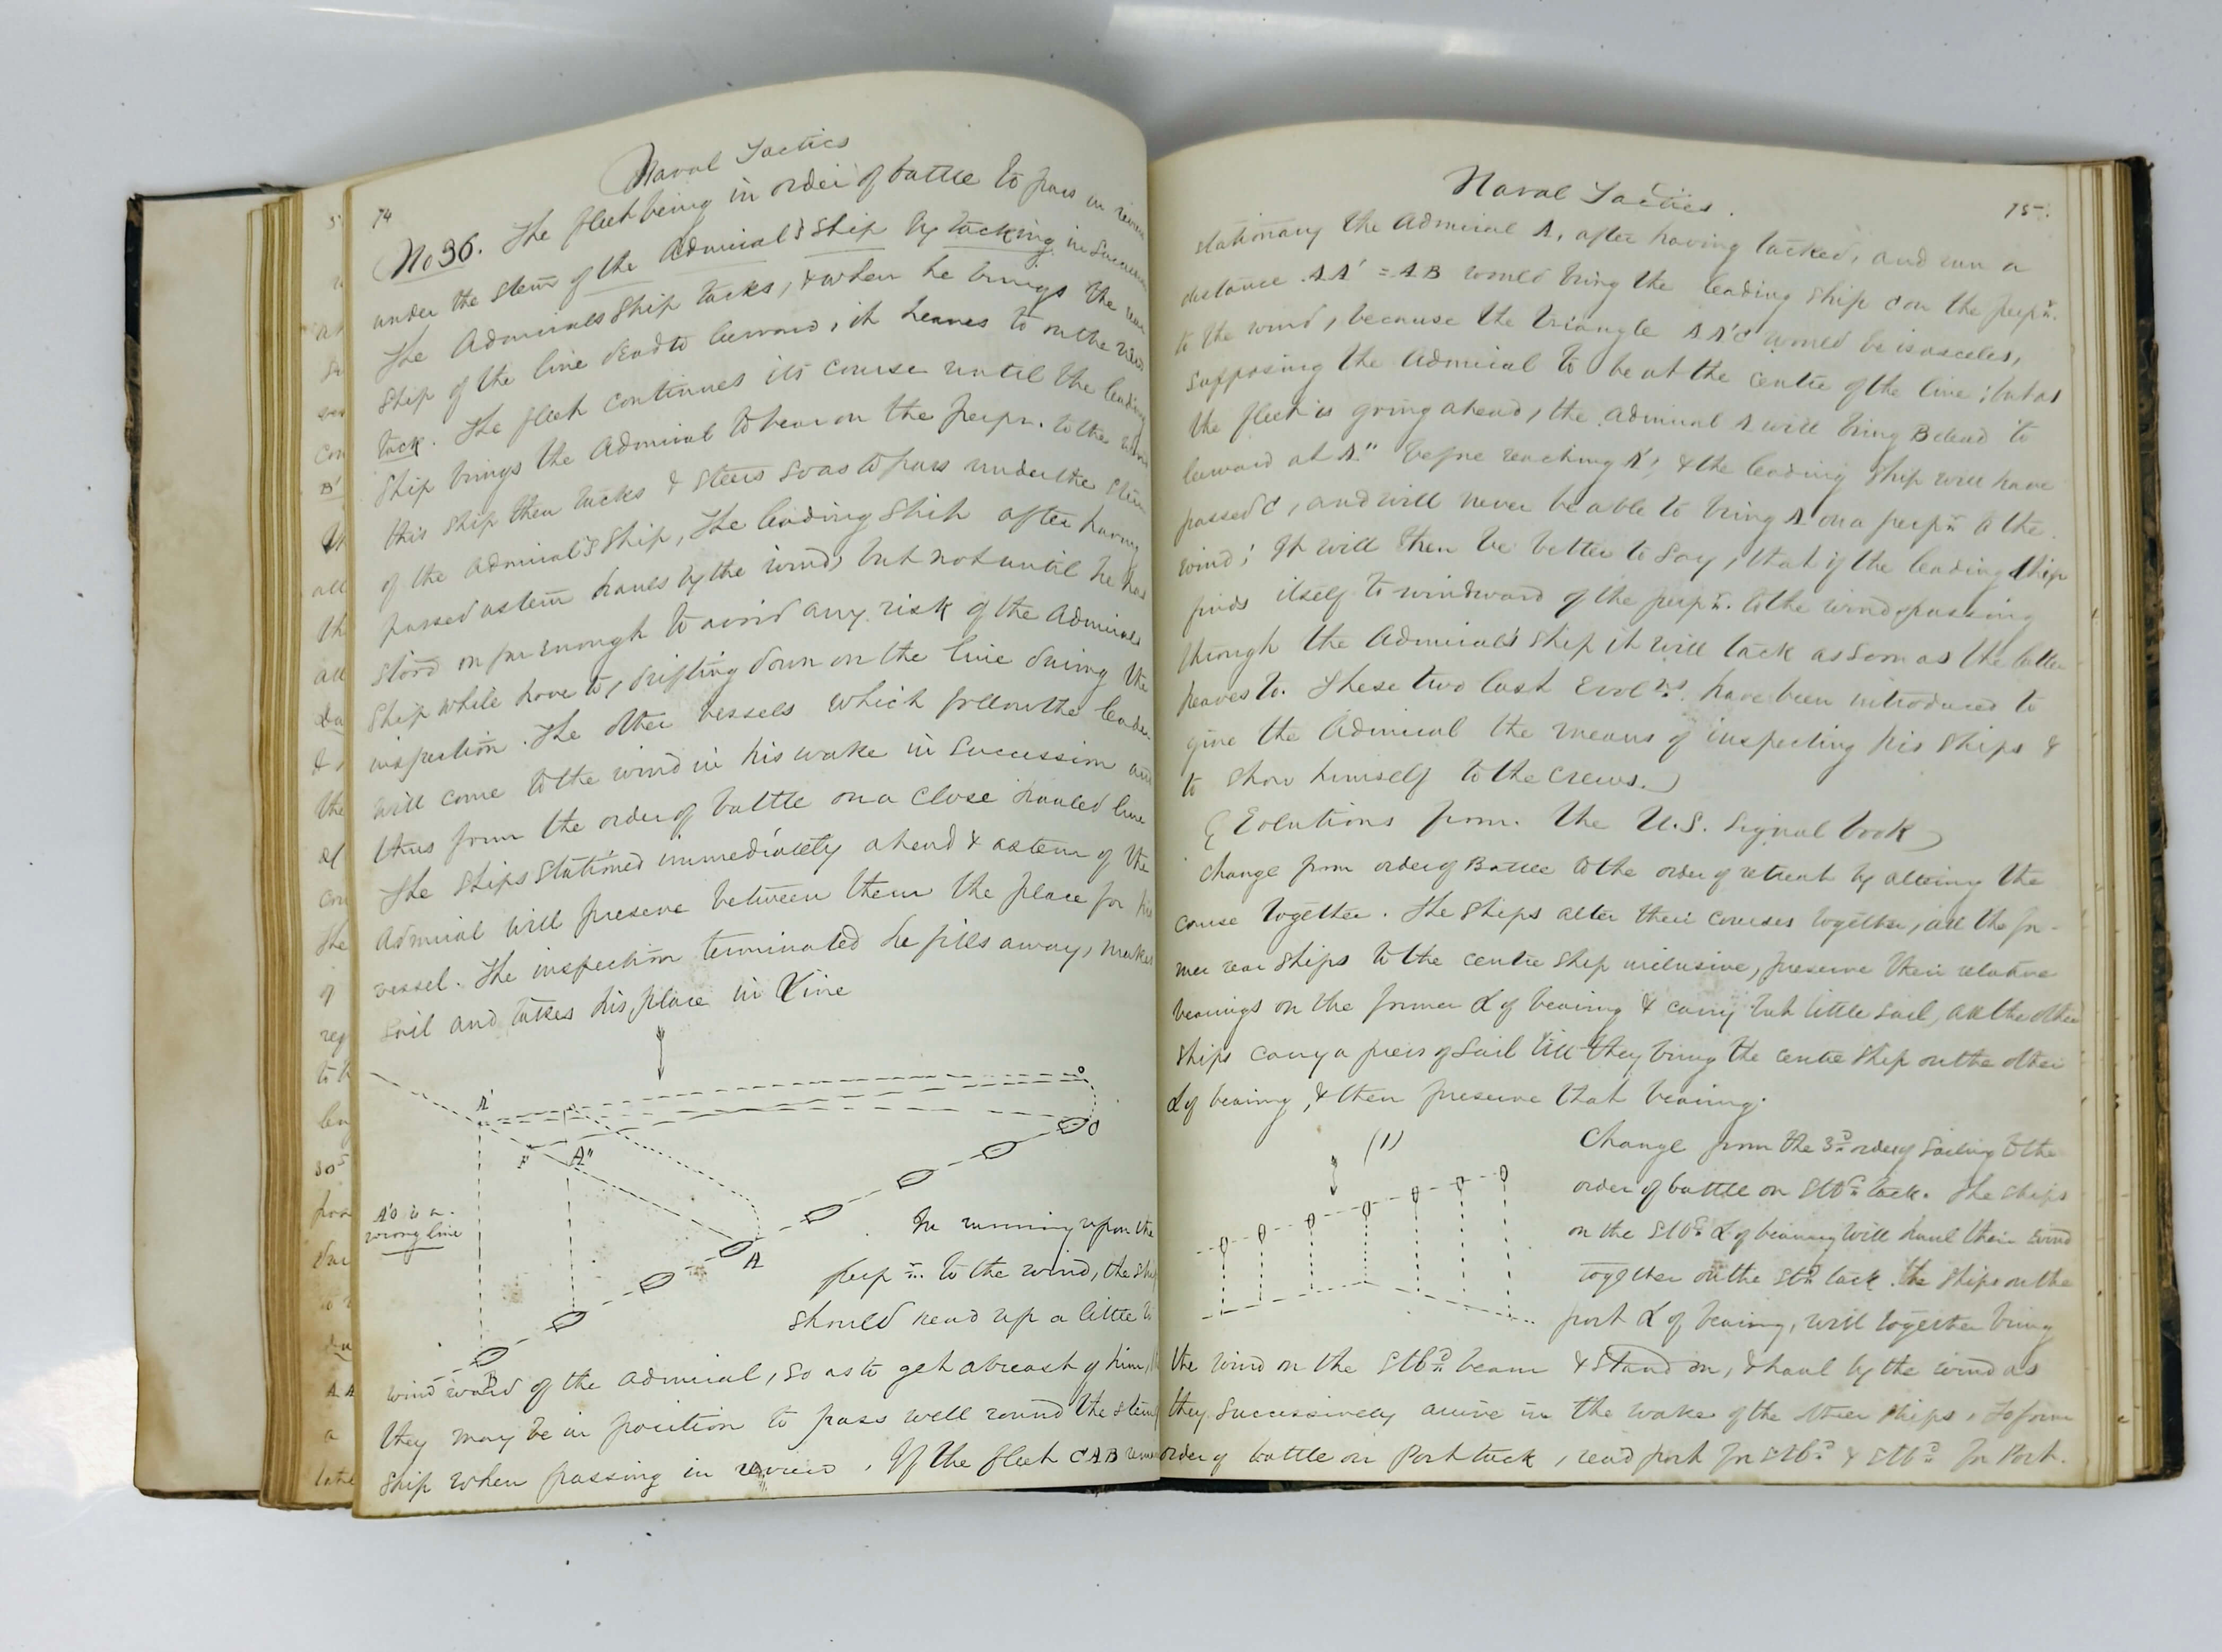 74
Naval Tactics
No 36. The fleet being in order of battle to pass in review
under the stern of the Admiral's ship by tacking in succession
The Admirals Ship tacks, & when he brings the rear
ship of the line dead to leeward, it heaves to on the new
tack. The fleet continues its course until the leading
ship brings the Admiral to bear on the perpr. to the wind
this ship then tacks & steers so as to pass under the stern
of the Admiral's ship, The leading Ship after having
passed astern hauls by the wind, but not until he has
stood on far enough to avoid any risk of the Admirals
ship while hove to, drifting down on the line during the
inspection. The other vessels which follow the leader
will come to the wind in his wake in succession and
thus form the order of battle on a close hauled line
The ships stationed immediately ahead & astern of the
Admiral will preserve between them the place for his
vessel. The inspection terminated he fills away, makes
sail and takes his place in Line
A'
F
A"
C
A'D is a
wrong line
A
B
In running upon the
perpr. to the wind, the ship
should head up a little to
windward of the admiral, so as to get abreast of him,
they may be in position to pass well round the stern
ship when passing in review. If the fleet CAB
Naval Tactics.
75.
stationary the Admiral A, after having tacked, and run a
distance AA' = AB would bring the leading ship C on the perpr.
to the wind, because the triangle AA'C would be isosceles,
supposing the Admiral to be at the centre of the line; but as
the fleet is going ahead, the Admiral A will bring B dead to
leeward at A" before reaching A', & the leading ship will have
passed C, and will never be able to bring A on a perpr to the
wind; It will then be better to say, that if the leading ship
finds itself to windward of the perpr. to the wind passing
through the Admiral's ship it will tack as soon as the latter
heaves to. These two last Evolns. have been introduced to
give the Admiral the means of inspecting his ships &
to show himself to the crews.)
(Evolutions from the U.S. Signal book)
Change from order of Battle to the order of retreat by altering the
course together. The ships alter their courses together, all the for-
mer rear ships to the centre ship inclusive, preserve their relative
bearings on the former L of bearing & carry but little sail, all the other
ships carry a press of sail till they bring the centre ship on the other
L of bearing, & then preserve that bearing.
(1)
Change from the 3d order of sailing to the
order of battle on Stbd tack. The ships
on the Stbd L of bearing will haul their wind
together on the Stbd tack. The ships on the
port L of bearing, will together bring
the wind on the Stbd beam & stand on, & haul by the wind as
they successively arrive in the wake of the other ships, To form
order of battle on Port tack, read port for Stbd & Stbd for Port.